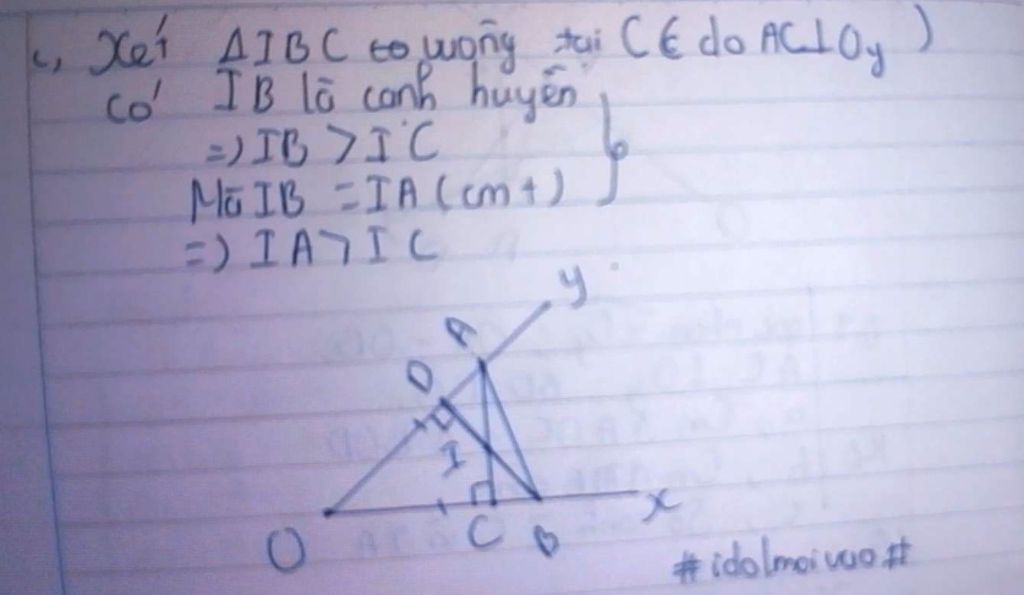 c, Xét ΔIBC có vuông tại C (do AC⊥Oy)
Có IB là cạnh huyền
=) IB > IC
Mà IB = IA (cmt)
=) IA > IC
y
A
D
I
O
C
B
x
#idolmoivao#